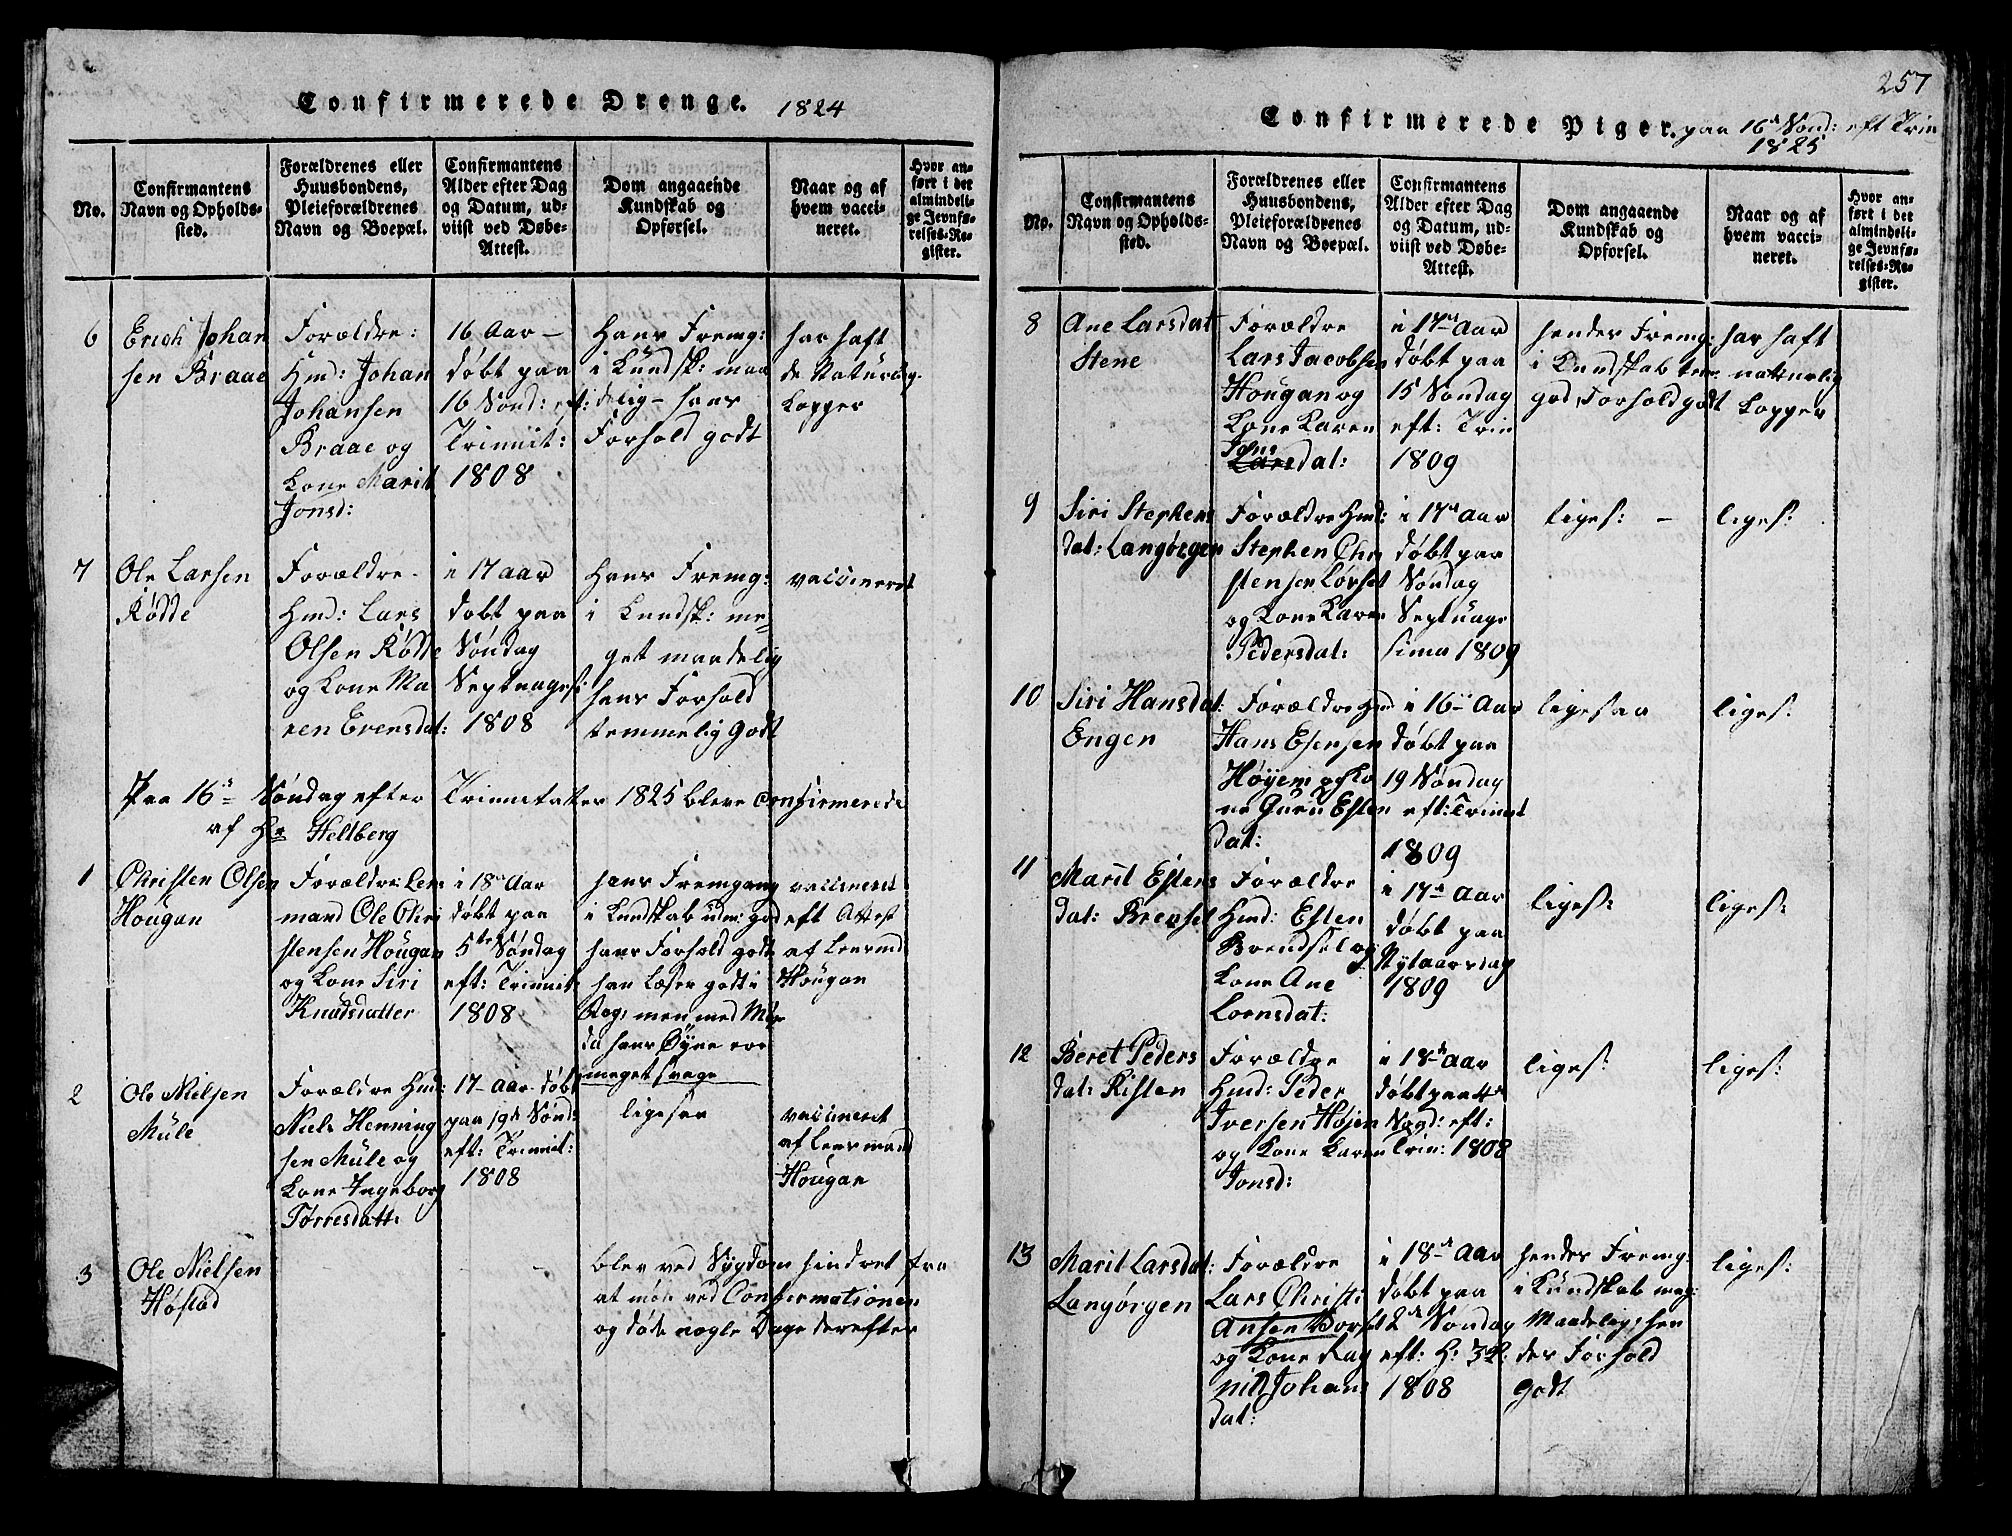 Confirmerede Drenge. 1824
No.
Confirmantens
Navn og Opholds-
sted.
Forældrenes eller
Huusbondens,
Pleieforældrenes
Navn og Boepæl.
Confirmantens
Alder efter Dag
og Datum, ud-
viist ved Døbe-
Attest.
Dom angaaende
Kundskab og
Opførsel.
Naar og af
hvem vacci-
neret.
Hvor an-
ført i det
almindeli-
ge Jevnfø-
relses-Re-
gister.
6
Erich Johan
sen Braae
Forældre:
Hmd: Johan
Johansen
Braae og
Kone Marit
Jonsd:
16 Aar –
døbt paa
16 Sønd: eft:
Trinnit:
1808
Hans Fremg:
i Kundsk: maa
delig – hans
Forhold godt
har haft
de Naturlig.
Kopper
7
Ole Larsen
Rødde
Forældre
Hmd: Lars
Olsen Rødde
og Kone Ma
ren Evensdat:
i 17 aar
døbt paa
Søndag
Septuagesi:
1808
Hans Fremg:
i Kundsk: me-
get maadelig
hans Forhold
temmelig Godt
vaccineret
Paa 16de Søndag efter Trinnitatter 1825 bleve Confirmerede
af Hr Heltberg
1
Christen Olsen
Hougan
Forældre: Len
mand Ole Chri
stensen Hougan
og Kone Siri
Knudsdatter
i 18de Aar
døbt paa
5te Søndag
eft: Trinnit:
1808
hans Fremgang
i Kundskab udm: god
hans Forhold godt
han Læser godt i
Bog, men med Møie
da hans Øyne ere
meget svage
vaccineret
eft Attest
af Leensmd
Hougan
2
Ole Nielsen
Mule
Forældre Hmd:
Niels Henning
sen Mule og
Kone Ingeborg
Tørresdatt:
17– Aar døbt
paa 19de Sønd:
eft: Trinnit:
1808
ligesaa
vaccineret
af Leensmand
Hougan
3
Ole Nielsen
Høstad
blev ved Sygdom hindret fra
at møde ved Confirmationen
og døde nogle Dage derefter
257
Confirmerede Piger. paa 16de Sønd: eft Trin
1825
No.
Confirmantens
Navn og Opholds-
sted.
Forældrenes eller
Huusbondens,
Pleieforældrenes
Navn og Boepæl.
Confirmantens
Alder efter Dag
og Datum, ud-
viist ved Døbe-
Attest.
Dom angaaende
Kundskab og
Opførsel.
Naar og af
hvem vacci-
neret.
Hvor an-
ført i det
almindeli-
ge Jevnfø-
relses-Re-
gister.
8
Ane Larsdat
Stene
Forældre
Lars Jacobsen
Hougan og
Kone Karen
Johns
Larsdat:
i 17de Aar
døbt paa
15 Søndag
eft: Trin
1809
hendes Fremg:
i Kundskab tem
god, Forhold godt
har haft
naturlig
Kopper
9
Siri Stephens
dat: Langørgen
Forældre Hmd:
Stephen Chri
stensen Lørset
og Kone Karen
Pedersdat:
i 17de Aar
døbt paa
Søndag
Septuage
sima 1809
liges: –
liges:
10
Siri Hansdat:
Engen
Forældre Hmd
Hans Esensen
Høyem og Ko
ne Guru Esten
dat:
i 16de Aar
døbt paa
19 Søndag
eft: Trinnit
1809
ligesaa
liges:
11
Marit Estens
dat: Brensel
Forældre
Hmd: Esten
Brendsel og
Kone Ane
Lornsdat:
i 17de Aar
døbt paa
Nytaarsdag
1809
liges:
liges:
12
Beret Peders
dat: Risten
Forældre
Hmd: Peder
Iversen Højem
og Kone Karen
Jonsd:
i 18de Aar
døbt paa 4de
Sønd: eft:
Trin: 1808
liges:
liges:
13
Marit Larsdat:
Langørgen
Forældre
Lars Christi
Ansen Borset
og Kone Rag
nil Johans
dat:
i 18de Aar
døbt paa
2de Søndag
eft: H: 3K:
1808
hendes Fremg:
i Kundskab meg:
Maadelig, hen
des Forhold
Godt
liges: